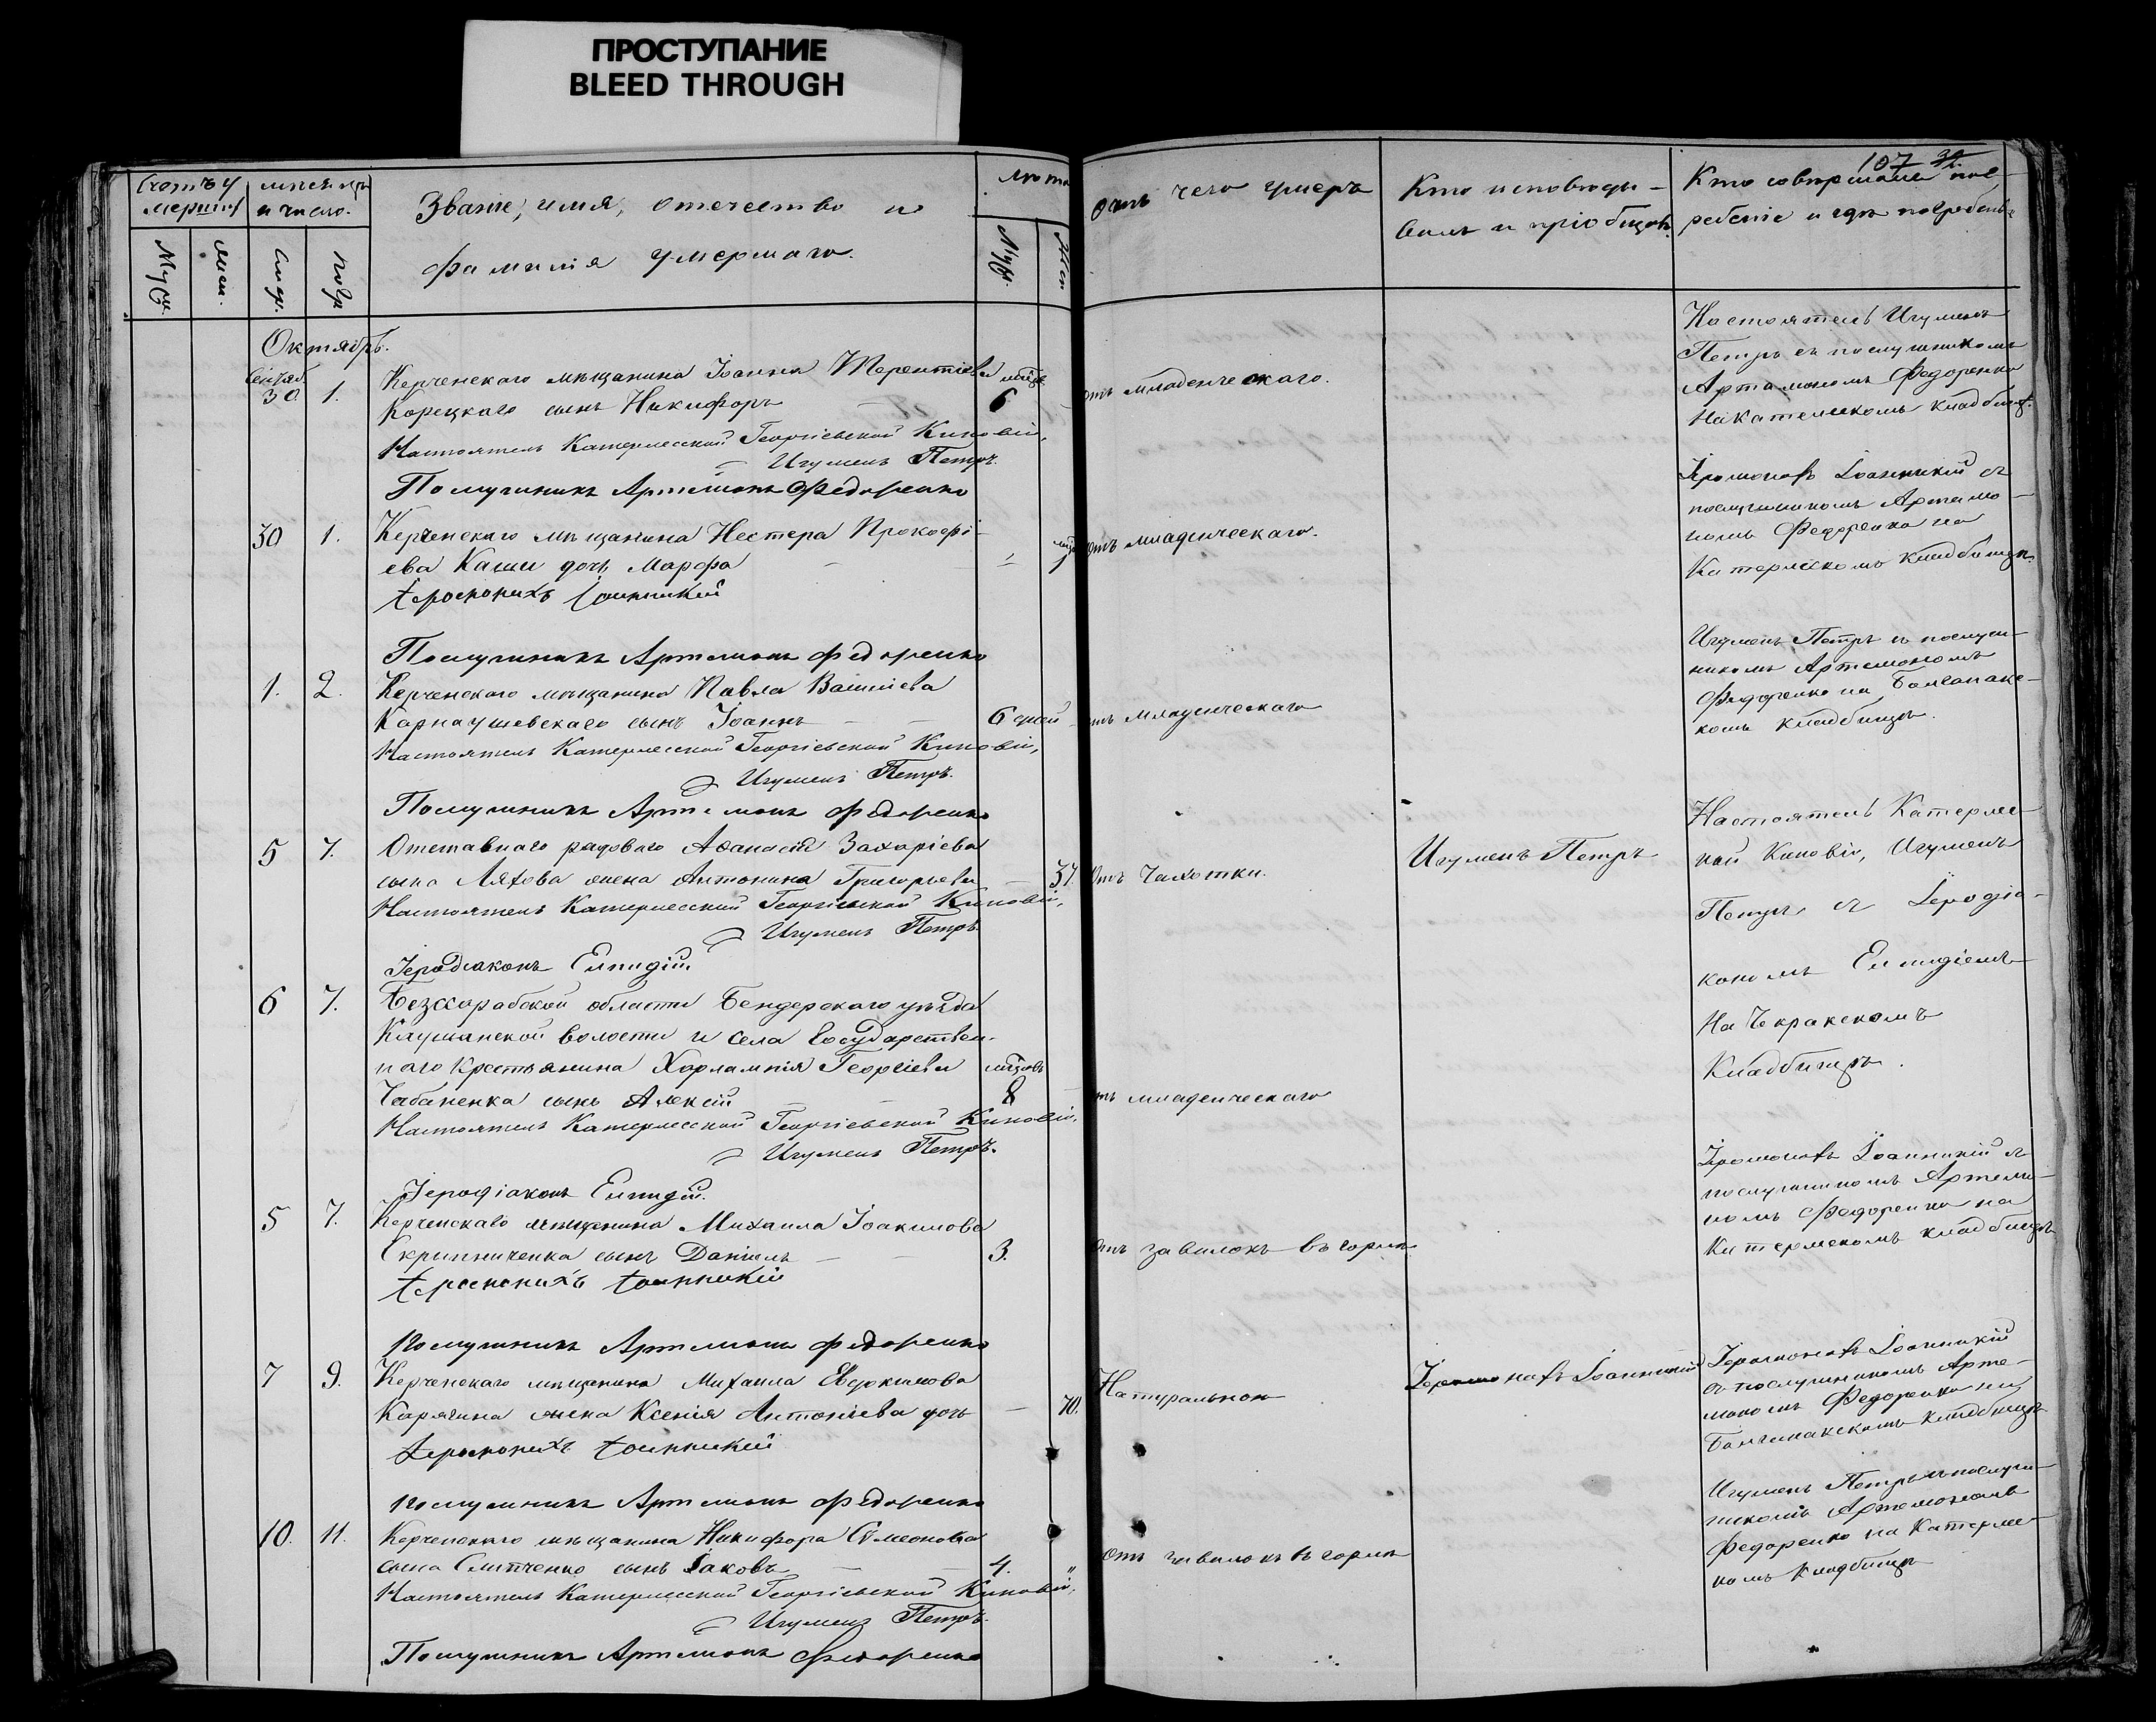 ПРОСТУПАНИЕ
BLEED THROUGH
107 39.
Счетъ у
мершихъ
мѣсяцъ
и число.
Званіе, имя, отечество и
фамилія умершаго.
Лѣта
Муж.
Жен.
Смер.
погр.
Муж.
Жен.
отъ чего умеръ
Кто исповѣды-
валъ и пріобщалъ.
Кто совершалъ пог-
ребеніе и гдѣ погребены
Октябрь.
Сентяб.
30. 1.
Керченскаго мѣщанина Іоанна Терентіева
Корецкаго сынъ Никифоръ
6
отъ младенческаго.
Настоятель Игуменъ
Петръ съ послушникомъ
Артамономъ Федоренко
на Катерлескомъ кладбищѣ.
Настоятель Катерлесской Георгіевской Киновіи,
Игуменъ Петръ.
Послушникъ Артемонъ Федоренко
30 1.
Керченскаго мѣщанина Нестера Прокофі-
ева Каши дочь Марфа
отъ младенческаго.
Іеромонахъ Іоанникій съ
послушникомъ Артамо-
номъ Федоренко на
Катерлескомъ кладбищѣ.
Іеромонахъ Іоанникій
Послушникъ Артемонъ Федоренко
1. 2.
Керченскаго мѣщанина Павла Васильева
Карнаушевскаго сынъ Іоаннъ
6 дней
отъ младенческаго
Игуменъ Петръ съ послуш-
никомъ Артемономъ
Федоренко на
комъ кладбищѣ.
Настоятель Катерлесской Георгіевской Киновіи,
Игуменъ Петръ.
Послушникъ Артемонъ Федоренко
5 7.
Отставнаго рядоваго Афанасія Захаріева
сына Ляхова жена Антонина Григорьева
37.
отъ Чахотки.
Игуменъ Петръ
Настоятель Катерлес-
кой Киновіи, Игуменъ
Петръ съ Іеродіа-
кономъ Елпидіемъ
на Чокракскомъ
Кладбищѣ.
Настоятель Катерлесской Георгіевской Киновіи,
Игуменъ Петръ
Іеродіаконъ Елпидій.
6 7.
Безсарабской области Бендерскаго уѣзда
Каушанской волости и села Государствен-
наго крестьянина Харлампія Георгіева
Чабаненка сынъ Алексій
8
отъ младенческаго
Настоятель Катерлесской Георгіевской Киновіи,
Игуменъ Петръ.
Іеродіаконъ Елпидій.
5 7.
Керченскаго мѣщанина Михаила Іоакимова
Скрипниченка сынъ Даніилъ
3.
отъ завалокъ въ горлѣ
Іеромонахъ Іоанникій съ
послушникомъ Артемо-
номъ Федоренко на
Катерлескомъ кладбищѣ
Іеромонахъ Іоанникій
Послушникъ Артемонъ Федоренко
7 9.
Керченскаго мѣщанина Михаила Евдокимова
Карягина жена Ксенія Антоніева дочь
70.
Натуральною
Іеромонахъ Іоанникій
Іеромонахъ Іоанникій
съ послушникомъ Арте-
мономъ Федоренко на
кладбищѣ
Іеромонахъ Іоанникій
Послушникъ Артемонъ Федоренко
10. 11.
Керченскаго мѣщанина Никифора Симеонова
сына сынъ Іаковъ
4.
отъ завалокъ въ горлѣ
Игуменъ Петръ съ послуш-
никомъ Артемономъ
Федоренко на Катерлес-
комъ кладбищѣ
Настоятель Катерлесской Георгіевской Киновіи,
Игуменъ Петръ.
Послушникъ Артемонъ Федоренко